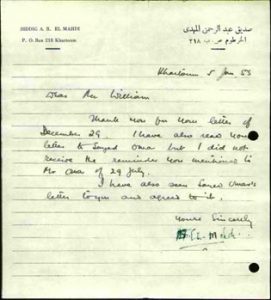 SIDDIG A. R. EL MAHDI
صديق عبد الرحمن المهدى
P. O. Box 218 Khartoum
الخرطوم ص . ب ٢١٨
Khartoum 5 Jan 53
Dear Mr William
Thank you for your letter of
December 29. I have also read your
letter to Sayed Omar but I did not
receive the reminder you mentioned to
Mr Omar of 29 July.
I have also seen Sayed Omar's
letter to you and agreed to it.
Yours Sincerely
S. El-Mahdi